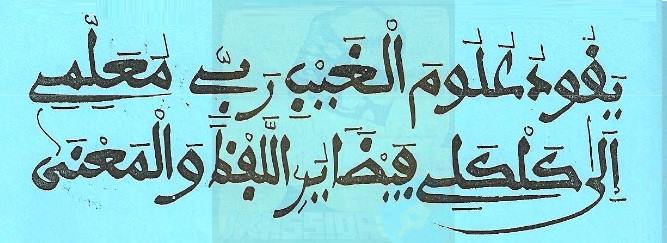 يَقُودُ عُلُومَ الْغَيْبِ رَبِّي مُعَلِّمِي
إِلَى كَلْكَلِي فَيْضًا يُرِ اللَّفْظَ وَالْمَعْنَى